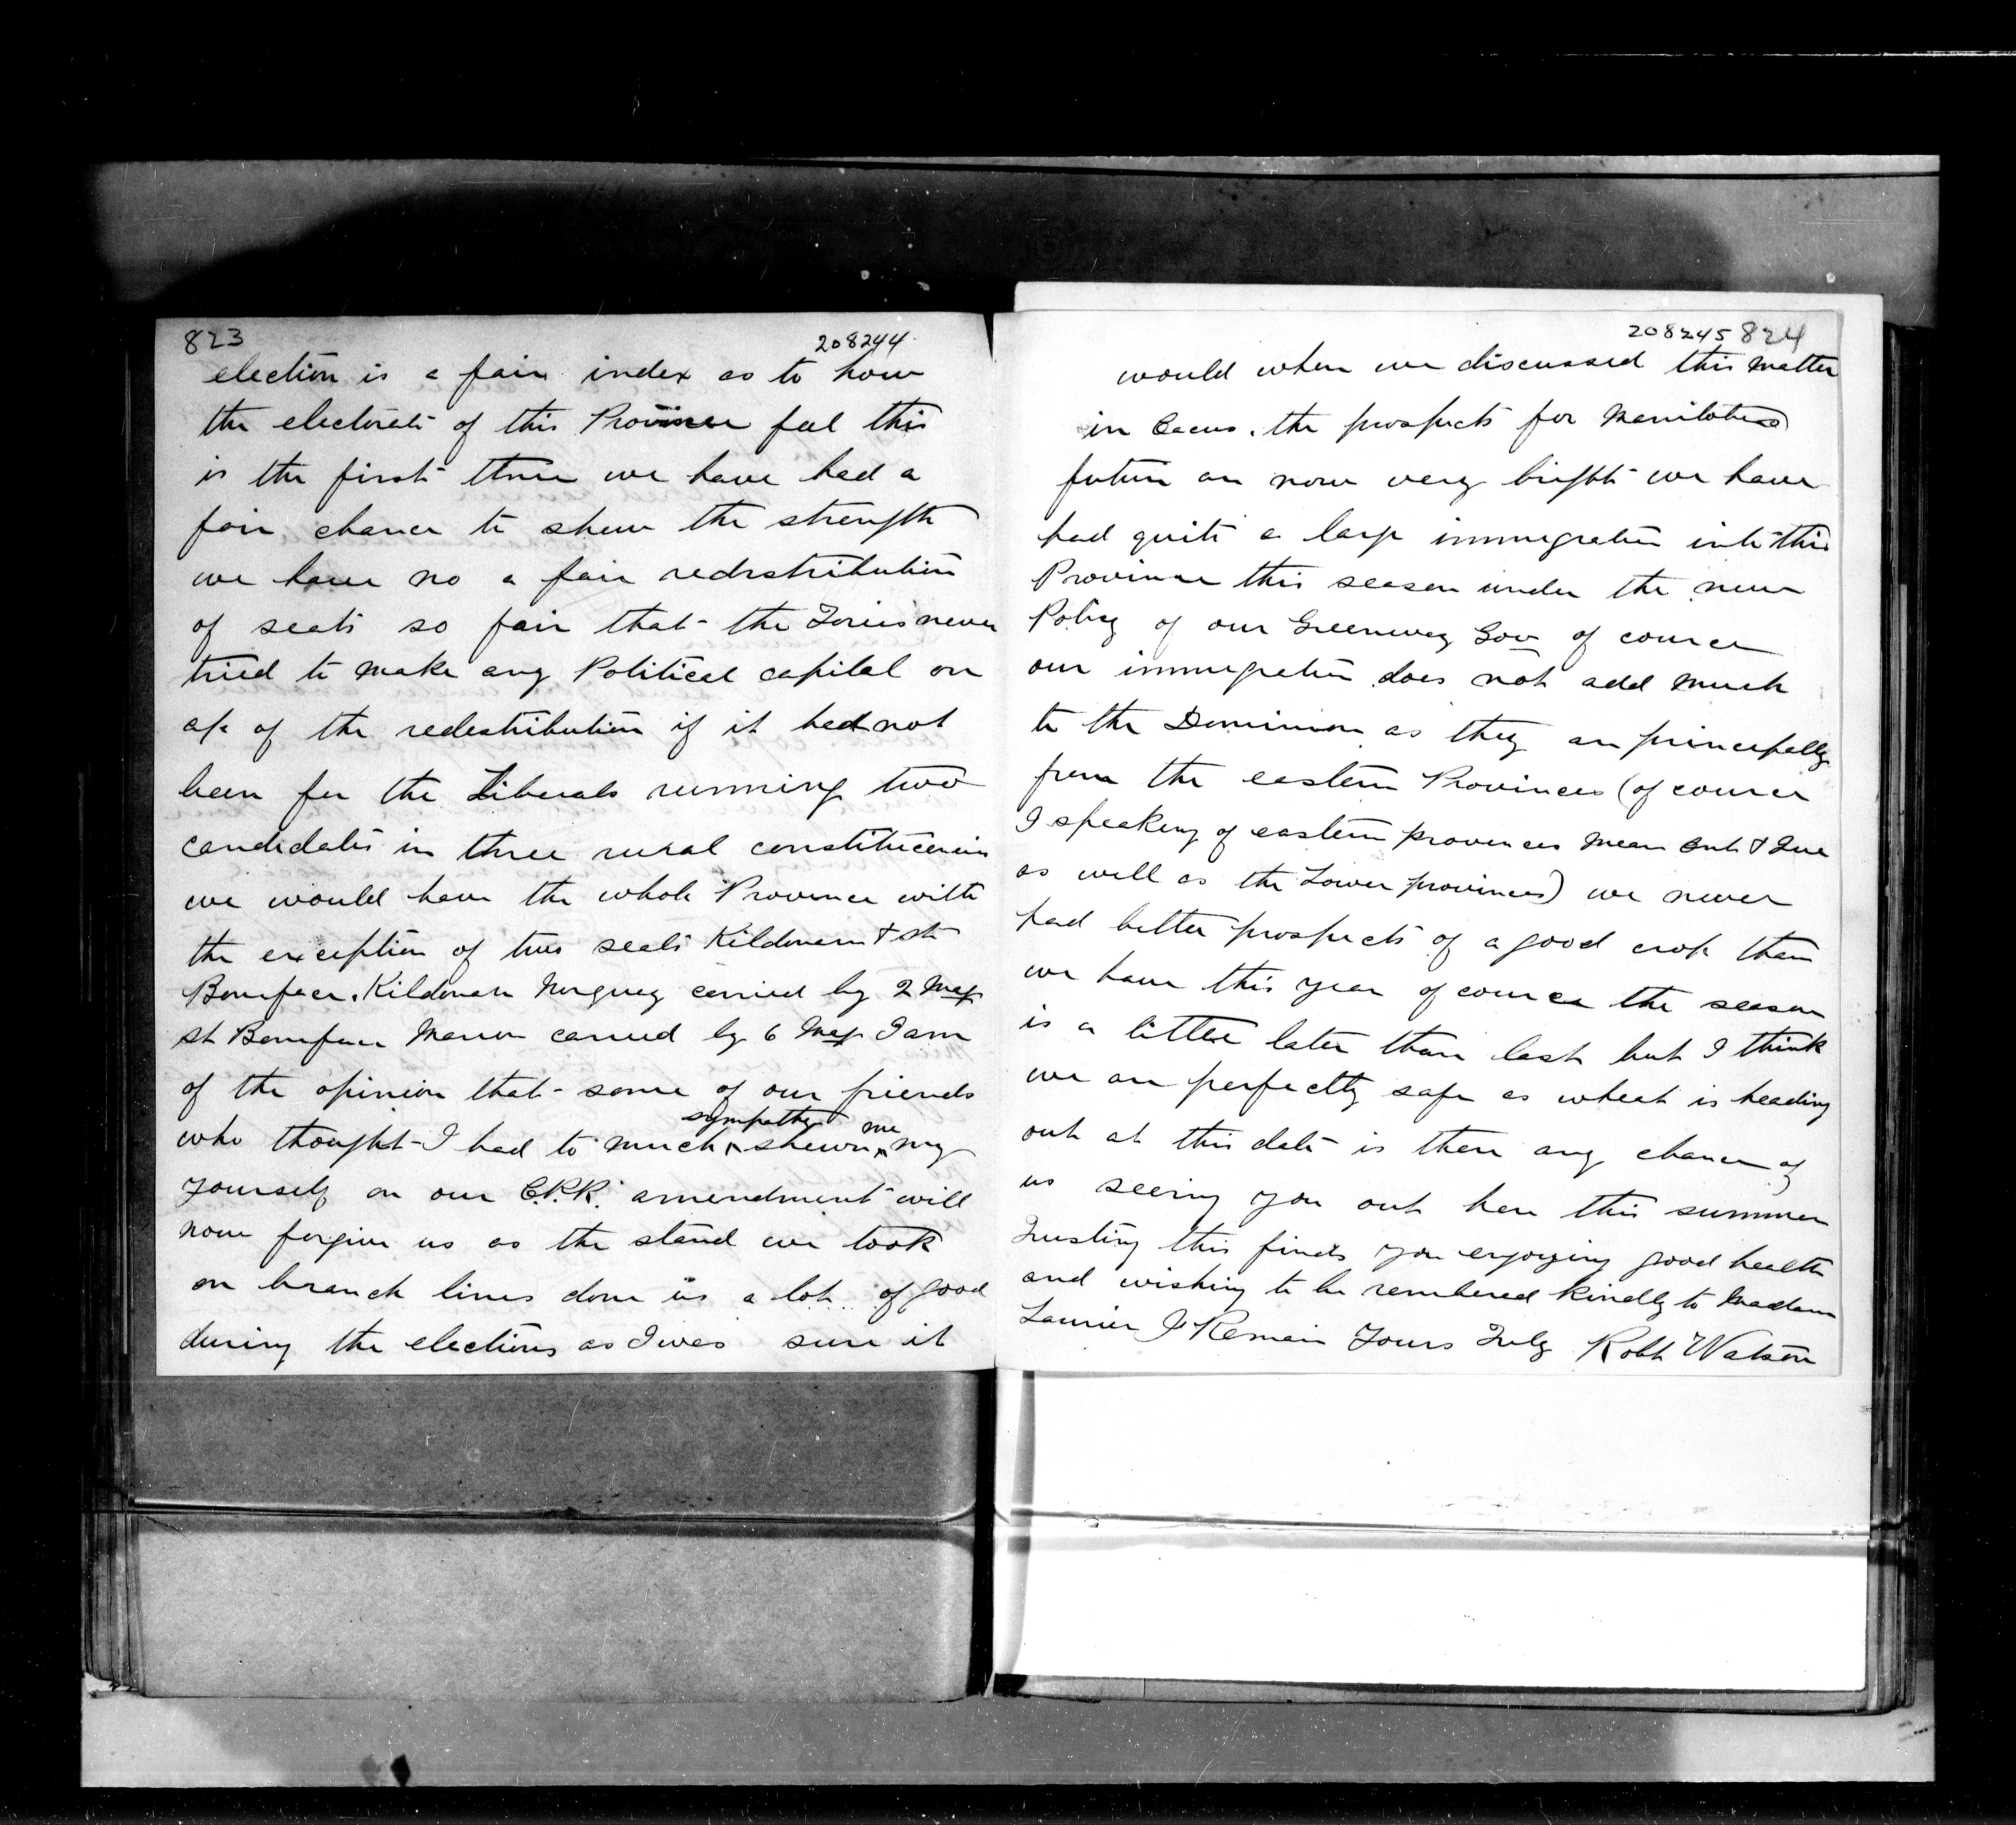 823
208244
election is a fair index as to how
the electorate of this Province feel this
is the first time we have had a
fair chance to shew the strength
we have no a fair redistribution
of seats so fair that the Tories never
tried to make any Political capital on
a/c of the redestribution if it had not
been for the Liberals running two
candidates in three rural constituencies
we would have the whole Province with
the exception of two seats Kildonan & St
Boniface. Kildonan Norquay carried by 2 Maj
St Boniface Marion carried by 6 Maj I am
of the opinion that some of our friends
sympathy me
who thought I had to much ^ shewn ^ my
yourself on our C.P.R. amendment will
now forgive us as the stand we took
on branch lines done us a lot of good
during the elections as I was sure it
208245 824
would when we discussed this matter
in Cacus. the prospects for Manitobas
future are now very bright we have
had quite a large immigration into this
Province this season under the new
Policy of our Greenway Gov of course
our immigration does not add much
to the Dominion as they are principally
from the eastern Provinces (of course
I speaking of eastern provinces mean Ont & Que
as well as the Lower provinces) we never
had better prospects of a good crop than
we have this year of course the season
is a little later than last but I think
we are perfectly safe as wheat is heading
out at this date is there any chance of
us seeing you out here this summer
Trusting this finds you enjoying good health
and wishing to be rembered kindly to Madam
Laurier I Remain Yours Truly Robt Watson